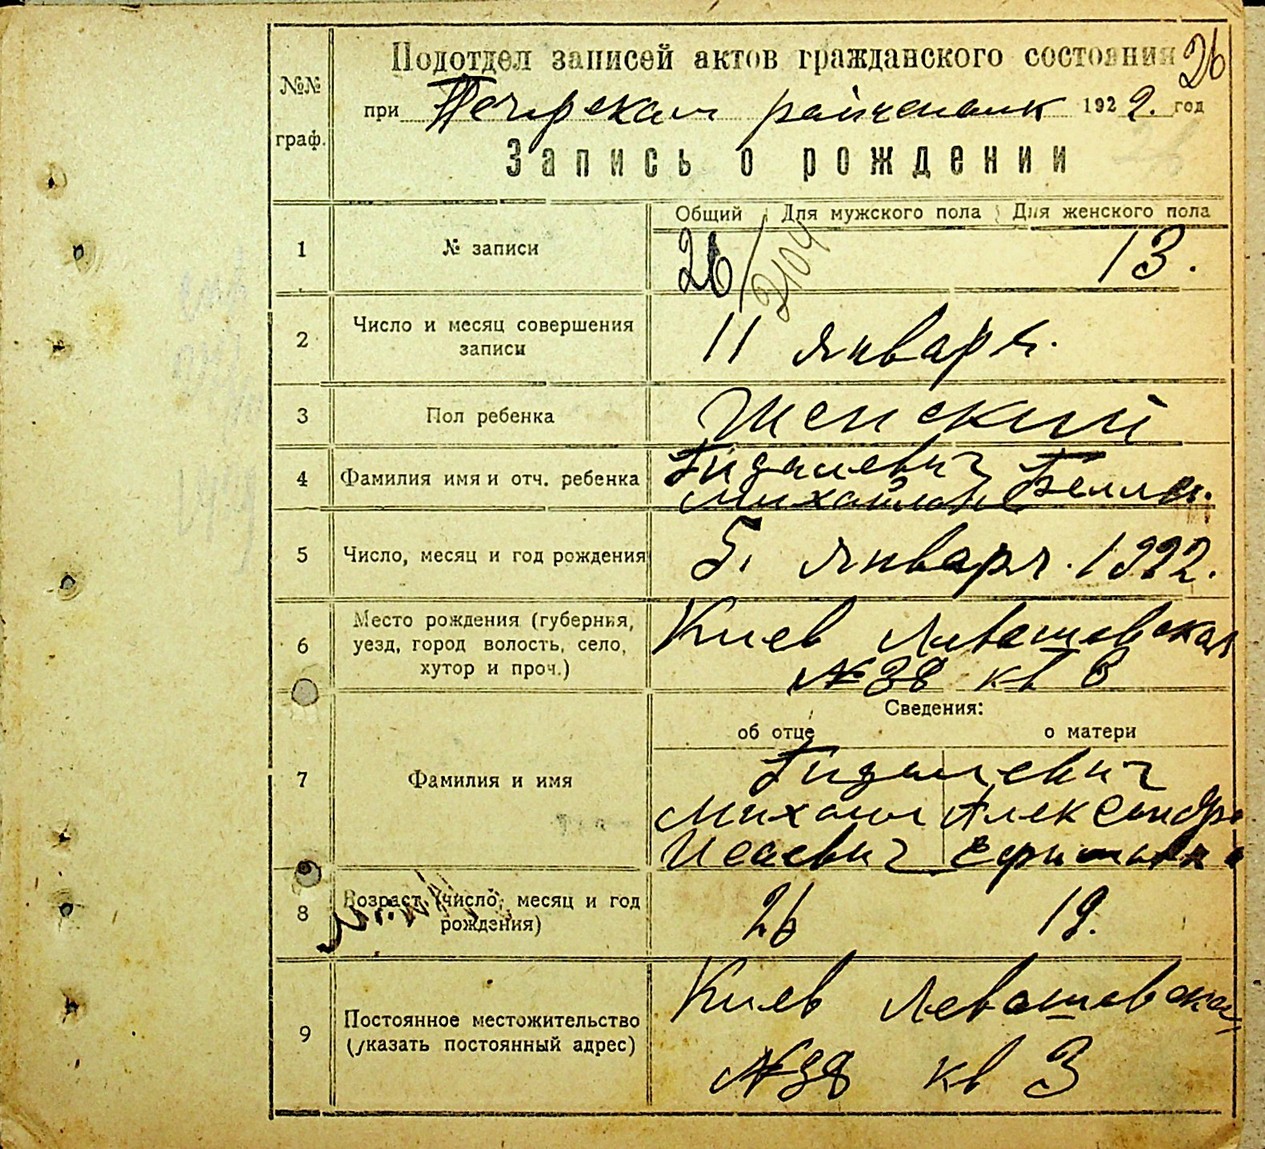 Подотдел записей актов гражданского состояния 26
№№ граф.
при Печерском райисполк 1922. год
Запись о рождении
Общий Для мужского пола Для женского пола
1 № записи 26/2104 13.
2 Число и месяц совершения
записи 11 января.
3 Пол ребенка Женский
4 Фамилия имя и отч. ребенка Гидалевич Белла
Михайловн
5 Число, месяц и год рождения 5. января. 1922.
6 Место рождения (губерния,
уезд, город волость, село,
хутор и проч.)
Киев Левашовская
№38 кв 3
Сведения:
об отце о матери
7 Фамилия и имя
Гидалевич
Михаил Александра
Исаевич Ефимовна
8 Возраст (число, месяц и год
рождения) 26 19.
9 Постоянное местожительство
(указать постоянный адрес)
Киев Левашовская
№38 кв 3